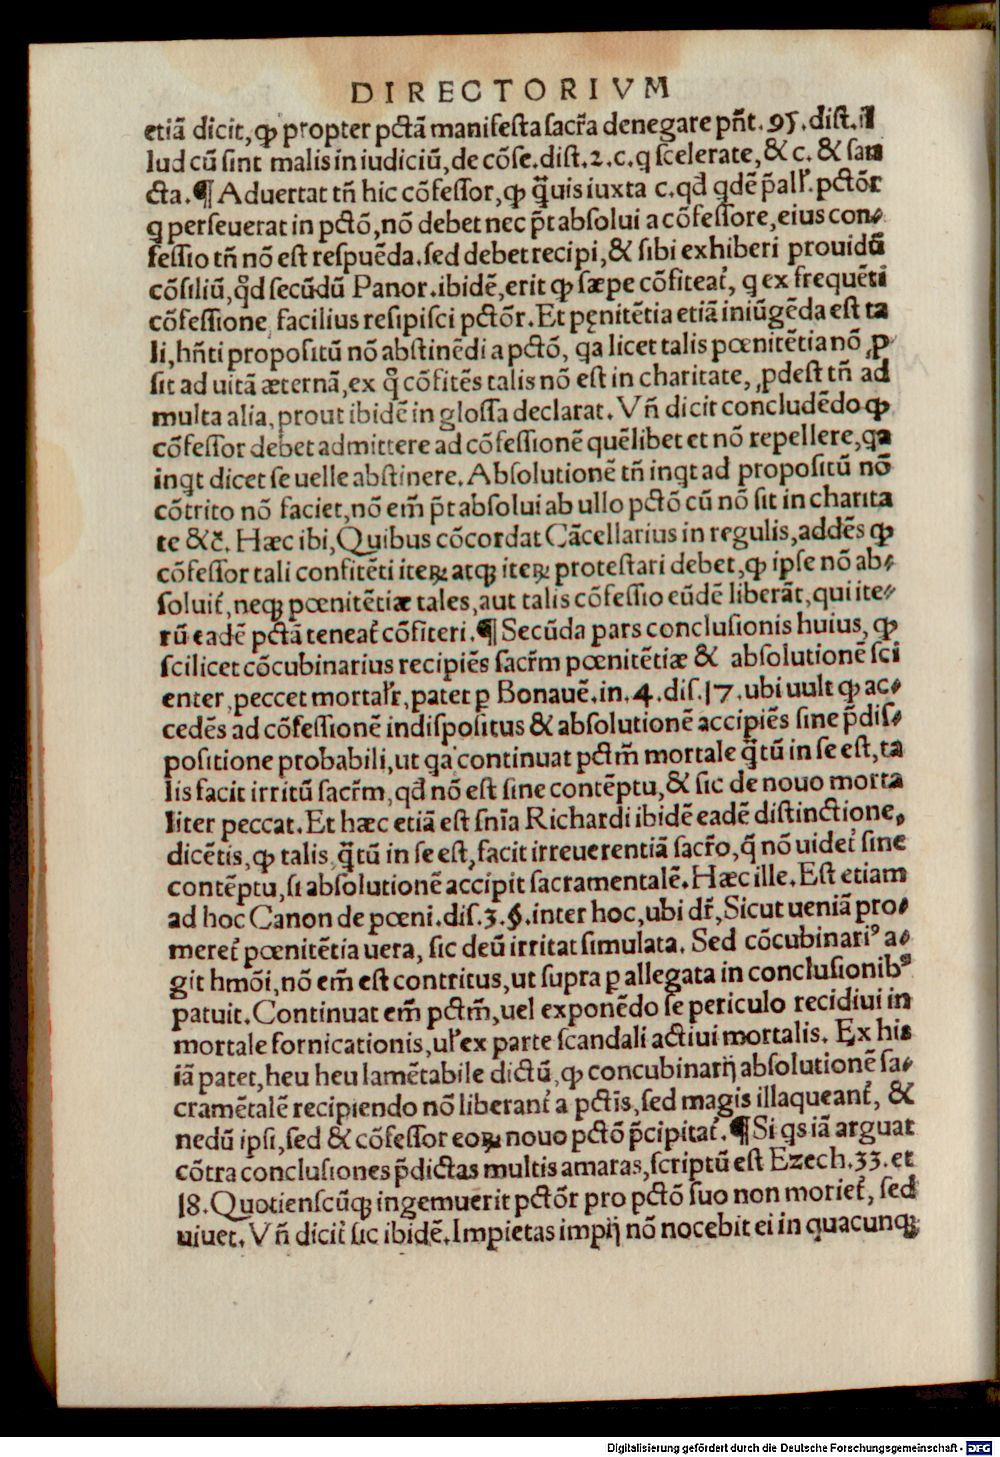 DIRECTORIVM
etiā dicit, ꝙ propter pctā manifesta sacr̃a denegare pn̄t. 95. dist. il
lud cū sint malis in iudiciū, de cōse. dist. 2. c. q scelerate, & c. & san
cta. ¶ Aduertat tn̄ hic cōfessor, ꝙ q̄uis iuxta c. qd̄ qdē p̄allꝉ. pctōr
q perseuerat in pctō, nō debet nec p̄t absolui a cōfessore, eius con⸗
fessio tn̄ nō est respuēda. sed debet recipi, & sibi exhiberi prouidū
cōsiliū, qd̄ secūdū Panor. ibidē, erit ꝙ sæpe cōfiteat᷑, q ex frequēti
cōfessione facilius resipisci pctōr. Et pęnitētia etiā iniūgēda est ta
li, hn̄ti propositū nō abstinēdi a pctō, qa licet talis pœnitētia nō ꝓ
sit ad uitā æternā, ex q̄ cōfitēs talis nō est in charitate, ꝓdest tn̄ ad
multa alia, prout ibidē in glossa declarat. Vn̄ dicit concludēdo ꝙ
cōfessor debet admittere ad cōfessionē quēlibet et nō repellere, qa
inqt dicet se uelle abstinere. Absolutionē tn̄ inqt ad propositū nō
cōtrito nō faciet, nō em̄ p̄t absolui ab ullo pctō cū nō sit in charita
te &c̄. Hæc ibi, Quibus cōcordat Cācellarius in regulis, addēs ꝙ
cōfessor tali confitēti iteꝝ atqꝫ iteꝝ protestari debet, ꝙ ipse nō ab⸗
soluit᷑, neqꝫ pœnitētiæ tales, aut talis cōfessio eūdē liberāt, qui ite⸗
rū eadē pctā teneat᷑ cōfiteri. ¶ Secūda pars conclusionis huius, ꝙ
scilicet cōcubinarius recipiēs sacr̄m pœnitētiæ & absolutionē sci
enter, peccet mortalꝉr, patet ꝑ Bonauē. in. 4. dis. 17. ubi uult ꝙ ac⸗
cedēs ad cōfessionē indispositus & absolutionē accipiēs sine p̄dis⸗
positione probabili, ut qa continuat pctm̄ mortale q̄tū in se est, ta
lis facit irritū sacr̄m, qd̄ nō est sine contēptu, & sic de nouo morta
liter peccat. Et hæc etiā est sn̄ia Richardi ibidē eadē distinctione,
dicētis, ꝙ talis q̄tū in se est, facit irreuerentiā sacr̄o, q̄ nō uidet᷑ sine
contēptu, si absolutionē accipit sacramentalē. Hæc ille. Est etiam
ad hoc Canon de pœni. dis. 3. §. inter hoc, ubi dr̄, Sicut ueniā pro⸗
meret᷑ pœnitētia uera, sic deū irritat simulata. Sed cōcubinariꝰ a⸗
git hmōi, nō em̄ est contritus, ut supra ꝑ allegata in conclusionibꝰ
patuit. Continuat em̄ pctm̄, uel exponēdo se periculo recidiui in
mortale fornicationis, uꝉ ex parte scandali actiui mortalis. Ex his
iā patet, heu heu lamētabile dictū, ꝙ concubinarij absolutionē sa⸗
cramētalē recipiendo nō liberant᷑ a pctis, sed magis illaqueant᷑, &
nedū ipsi, sed & cōfessor eoꝝ nouo pctō p̄cipitat᷑. ¶ Si qs iā arguat
cōtra conclusiones p̄dictas multis amaras, scriptū est Ezech. 33. et
18. Quotienscūqꝫ ingemuerit pctōr pro pctō suo non moriet᷑, sed
uiuet. Vn̄ dicit᷑ sic ibidē. Impietas impij nō nocebit ei in quacunqꝫ
Digitalisierung gefördert durch die Deutsche Forschungsgemeinschaft - DFG